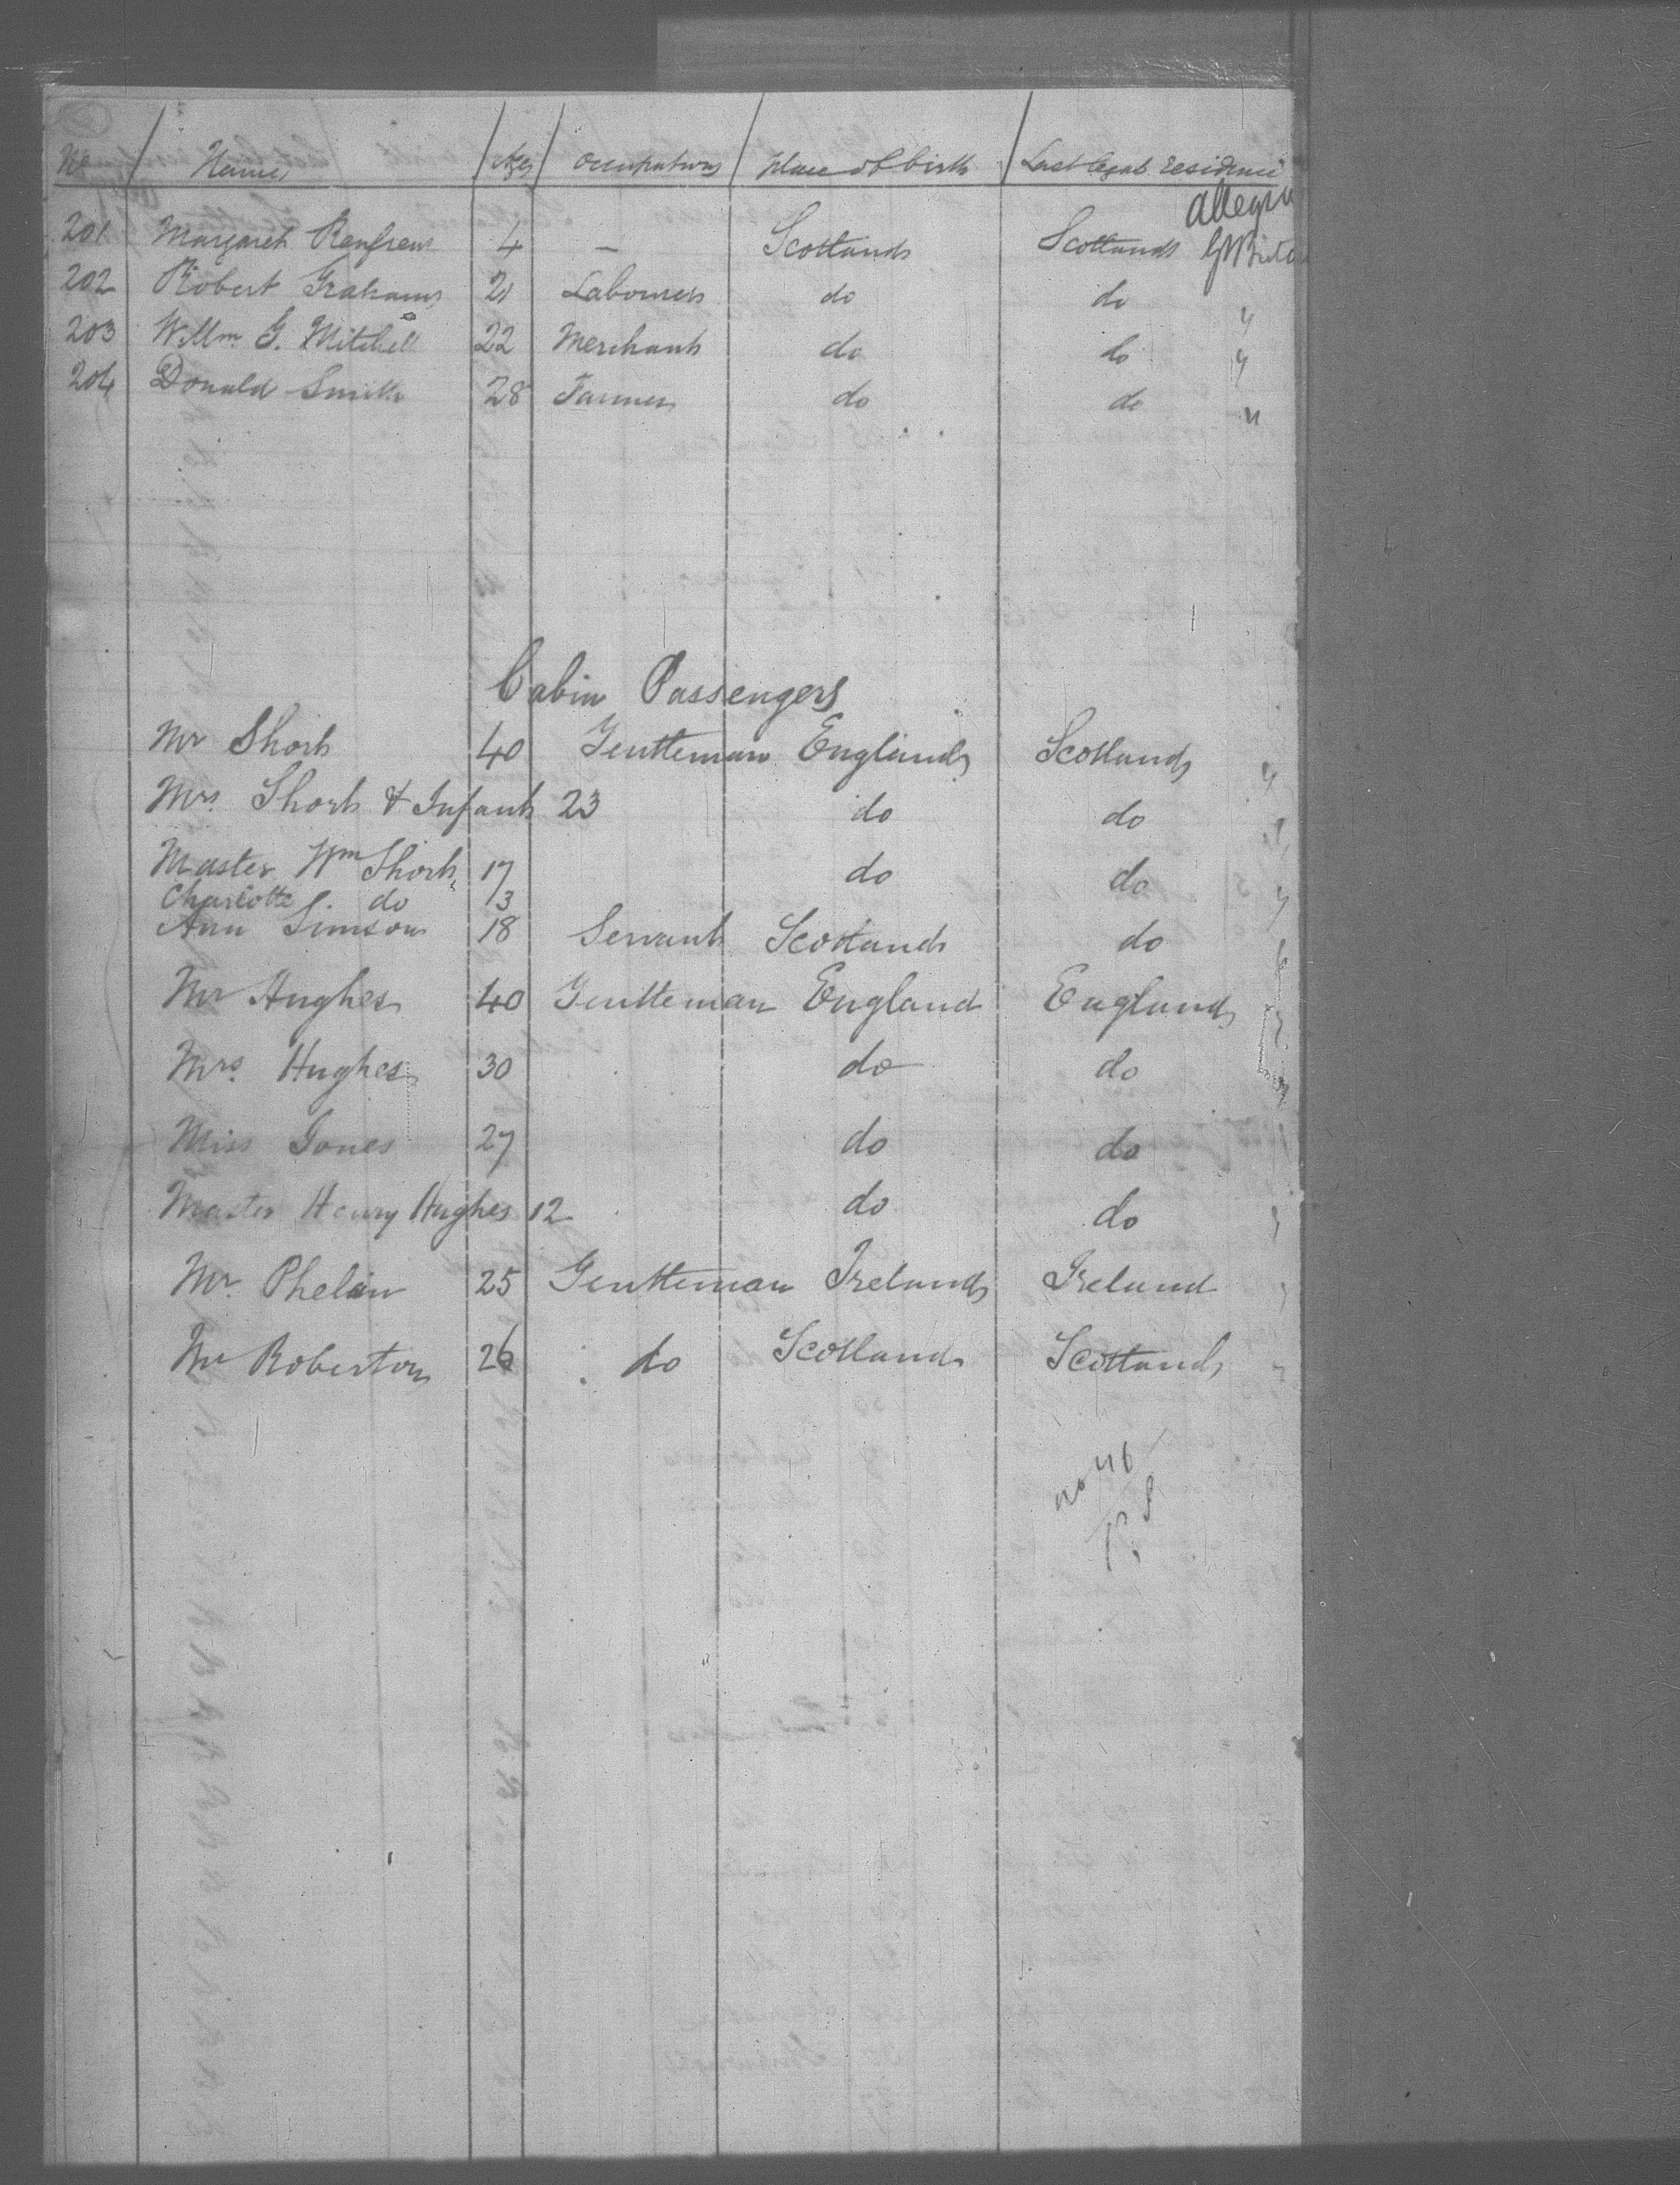 No Names Age Occupation place of birth Last legal residence
allegin
201 Margaret Renfrew 4 — Scotland Scotland G Britain
202 Robert Graham 21 Labourer do do "
203 Willm. G. Mitchell 22 Merchant do do "
204 Donald Smith 28 Farmer do do "
Cabin Passengers
Mr Short 40 Gentleman England Scotland "
Mrs. Short & Infant 23 do do "
Master Wm Short 17 do do "
Charlotte do 13
Ann Simson 18 Servant Scotland do
Mr Hughes 40 Gentleman England England
Mrs. Hughes 30 do do
Miss Jones 27 do do
Master Henry Hughes 12 do do "
Mr. Phelan 25 Gentleman Ireland Ireland "
Mr Roberton 26 do Scotland Scotland "
no 46